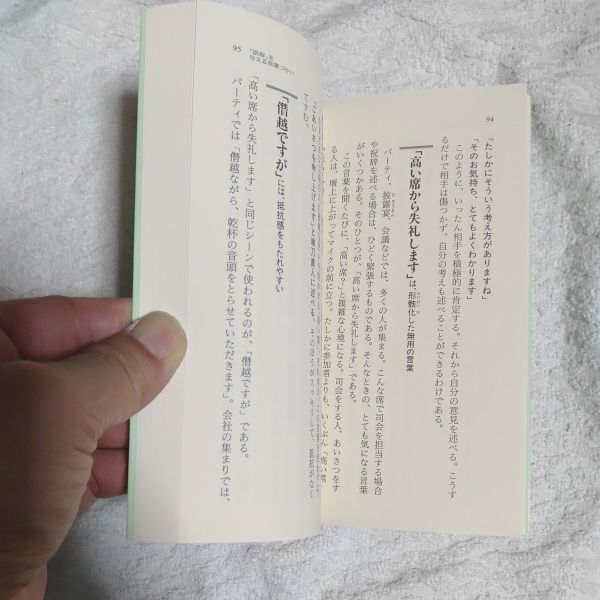 94
「たしかにそういう考え方がありますね」
「そのお気持ち、とてもよくわかります」
このように、いったん相手を積極的に肯定する。それから自分の意見を述べる。こうす
るだけで相手は傷つかず、自分の考えも述べることができるわけである。
「高い席から失礼します」は、形骸化した無用の言葉
パーティ、披露宴、会議などでは、多くの人が集まる。こんな席で司会を担当する場合
や祝辞を述べる場合は、ひどく緊張するものである。そんなときの、とても気になる言葉
がいくつかある。そのひとつが、「高い席から失礼します」である。
この言葉を聞くたびに、「高い席？」と複雑な心境になる。司会をする人、あいさつをす
る人は、壇上に上がってマイクの前に立つ。たしかに参加者よりも、いくぶん「高い席」
95
「誤解」を
与える言葉づかい
てすむ。
「僭越ですが」には、抵抗感をもたれやすい
「高い席から失礼します」と同じシーンで使われるのが、「僭越ですが」である。
パーティでは「僭越ながら、乾杯の音頭をとらせていただきます」。会社の集まりでは、